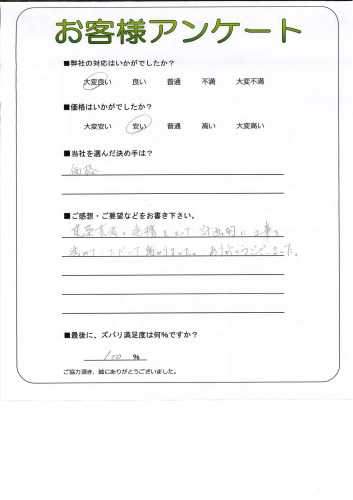 お客様アンケート
■弊社の対応はいかがでしたか？
大変良い 良い 普通 不満 大変不満
■価格はいかがでしたか？
大変安い 安い 普通 高い 大変高い
■当社を選んだ決め手は？
価格
■ご感想・ご要望などをお書き下さい。
建築業者の連携をとって 計画的に 工事を
進めていただいて助かりました。ありがとうございました。
■最後に、ズバリ満足度は何%ですか？
100 %
ご協力頂き、誠にありがとうございました。